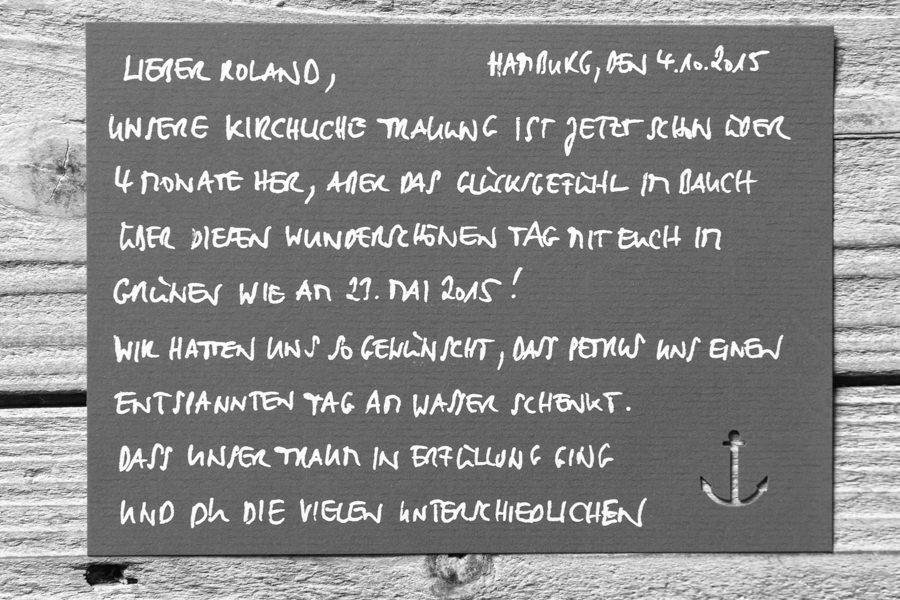 LIEBER ROLAND, HAMBURG, DEN 4.10.2015
UNSERE KIRCHLICHE TRAUUNG IST JETZT SCHON ÜBER
4 MONATE HER, ABER DAS GLÜCKSGEFÜHL IM BAUCH
ÜBER DIESEN WUNDERSCHÖNEN TAG MIT EUCH IM
GRÜNEN WIE AM 23. MAI 2015!
WIR HATTEN UNS SO GEWÜNSCHT, DASS PETRUS UNS EINEN
ENTSPANNTEN TAG AM WASSER SCHENKT.
DASS UNSER TRAUM IN ERFÜLLUNG GING
UND DU DIE VIELEN UNTERSCHIEDLICHEN